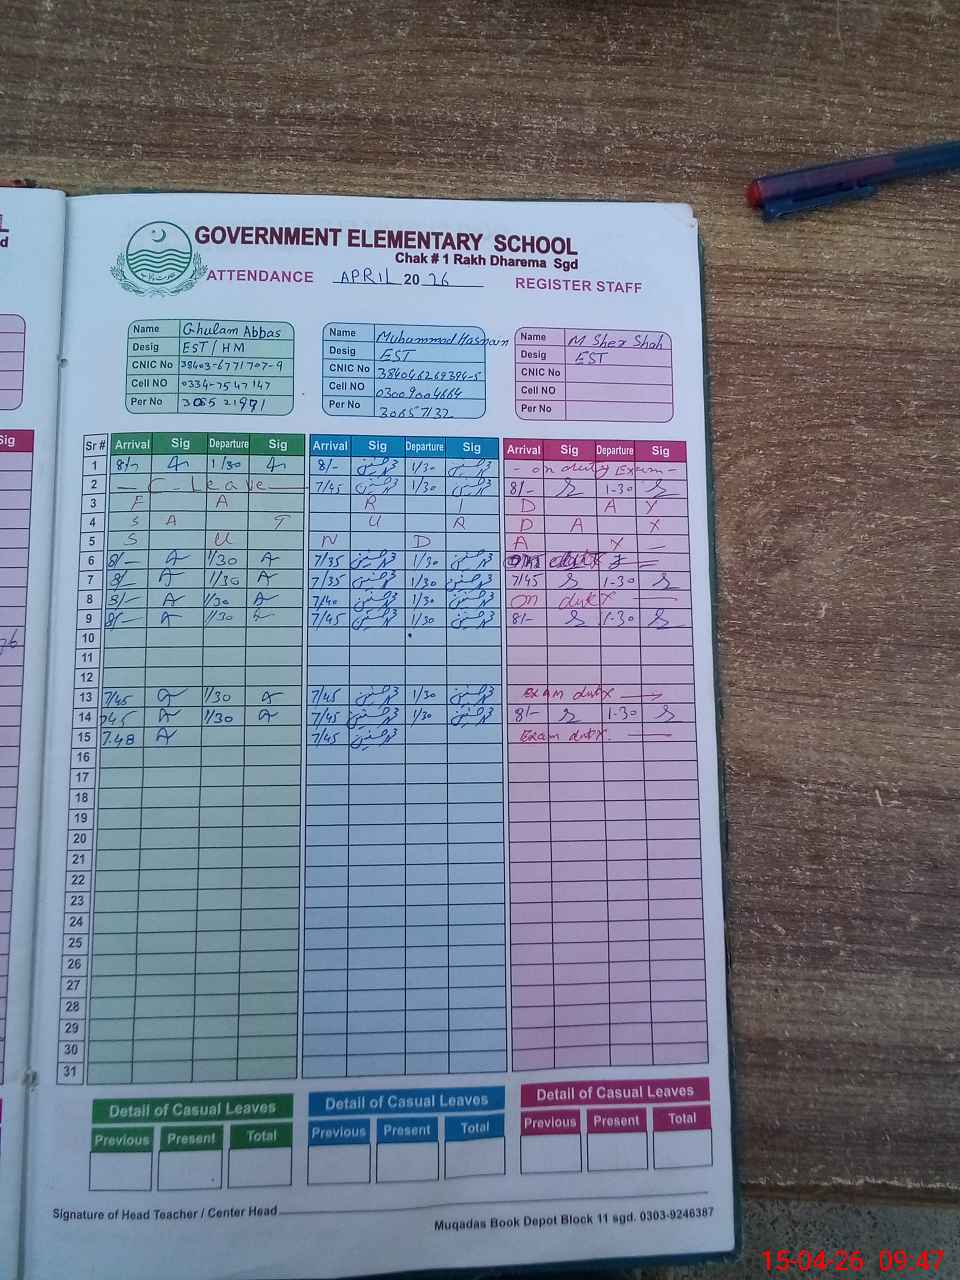 GOVERNMENT ELEMENTARY SCHOOL
Chak # 1 Rakh Dharema Sgd
ATTENDANCE APRIL 20 26 REGISTER STAFF
Name Ghulam Abbas
Desig EST/HM
CNIC No 38403-6771707-9
Cell NO 0334-7547147
Per No
Name Muhammad Hasnain
Desig EST
CNIC No 384046269394-5
Cell NO 03009004664
Per No 30657132
Name M Sher Shah
Desig EST
CNIC No
Cell NO
Per No
Sr # Arrival Sig Departure Sig Arrival Sig Departure Sig Arrival Sig Departure Sig
1 8/- 1/30 8/- 1/30 - on duty Exam -
2 - C. Leave - 7/45 1/30 8/- 1-30
3 F A R I D A Y
4 S A T U R D A Y
5 S U N D A Y -
6 8/- 1/30 7/35 1/30
7 8/- 1/30 7/35 1/30 7/45 1-30
8 8/- 1/30 7/40 1/30 On duty
9 8/- 1/30 7/45 1/30 8/- 1-30
10
11
12
13 7/45 1/30 7/45 1/30 Exam duty
14 1/30 7/45 1/30 8/- 1-30
15 7.48 7/45 Exam duty.
16
17
18
19
20
21
22
23
24
25
26
27
28
29
30
31
Detail of Casual Leaves Detail of Casual Leaves Detail of Casual Leaves
Previous Present Total Previous Present Total Previous Present Total
Signature of Head Teacher / Center Head
Muqadas Book Depot Block 11 sgd. 0303-9246387
15-04-26 09:47